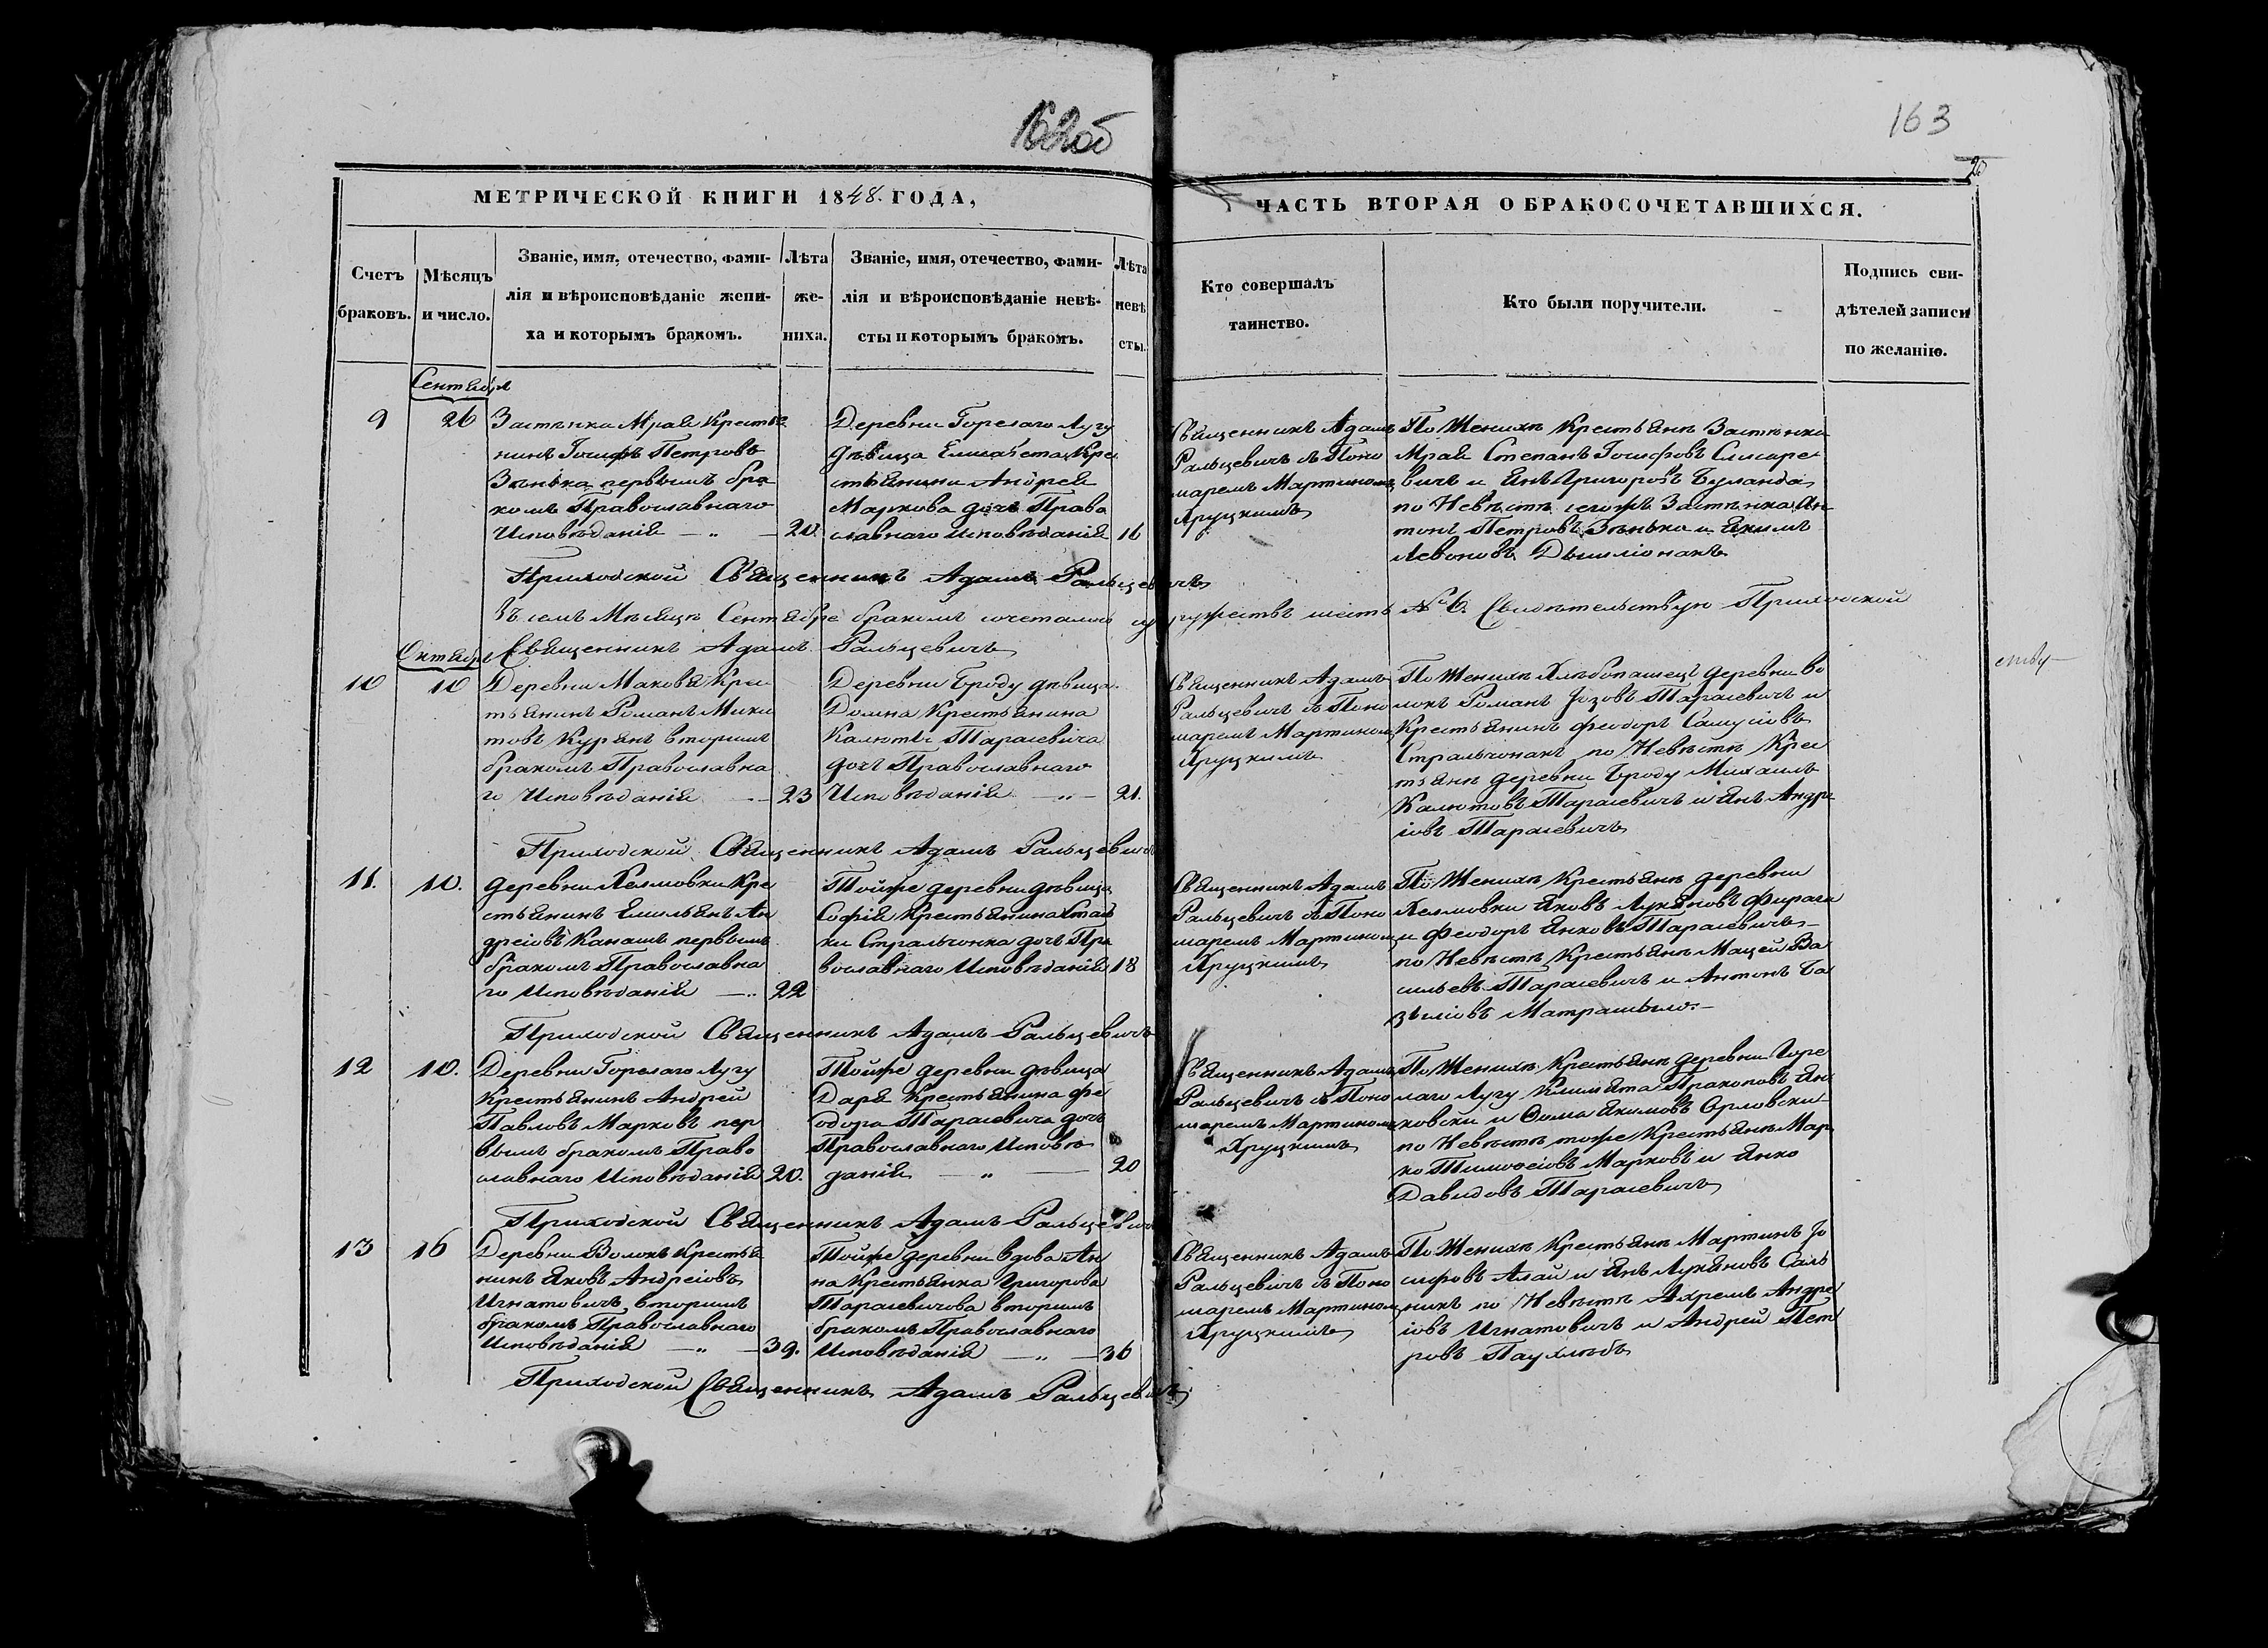 162об
163
20
МЕТРИЧЕСКОЙ КНИГИ 1848. ГОДА,
ЧАСТЬ ВТОРАЯ О БРАКОСОЧЕТАВШИХСЯ.
Счетъ
браковъ.
Мѣсяцъ
и число.
Званіе, имя, отечество, фами-
лія и вѣроисповѣданіе жени-
ха и которымъ бракомъ.
Лѣта
же-
ниха.
Званіе, имя, отечество, фами-
лія и вѣроисповѣданіе невѣ-
сты и которымъ бракомъ.
Лѣта
невѣ
сты.
Кто совершалъ
таинство.
Кто были поручители.
Подпись сви-
дѣтелей записи
по желанію.
Сентября
9
26
Застѣнка Мрая Крестья
нинъ Іосифъ Петровъ
Зѣнька первымъ бра
комъ Православнаго
Исповѣданія — „ —
20.
Деревни Горелаго Лугу
дѣвица Елисабета Кре
стьянина Андрея
Маркова дочь Право
славнаго Исповѣданія
16
Священникъ Адамъ
Ральцевичъ съ Поно
маремъ Мартиномъ
Хруцкимъ
По Женихѣ Крестьяне Застѣнка
Мрая Степанъ Іосифовъ Слисаре
вичъ и Янъ Григоровъ Буланда
по Невѣстѣ тогожъ Застѣнка Ан
тонъ Петровъ Зѣнька и Якимъ
Левоновъ
Приходской Священникъ Адамъ Ральцевичъ
Въ семъ Мѣсяцѣ Сентябре бракомъ сочеталось супружествъ шесть № 6. Свидѣтельствую Приходской
Священникъ Адамъ Ральцевичъ
Октября
10
10
Деревни Маковя Крес
тьянинъ Романъ Мики
товъ Курянъ вторымъ
бракомъ Православна
го Исповѣданія —
23
Деревни Броду дѣвица
Домна Крестьянина
Калюты Тарасевича
дочь Православнаго
Исповѣданія — „ —
21.
Священникъ Адамъ
Ральцевичъ съ Поно
маремъ Мартиномъ
Хруцкимъ
По Женихѣ Хлѣбопашецъ деревни Во
локъ Романъ Іозовъ Тарасевичъ и
Крестьянинъ Феодоръ Самусіовъ
Стральчонакъ по Невѣстѣ Крес
тьяне деревни Броду Михаилъ
Калютовъ Тарасевичъ и Янъ Андре
іовъ Тарасевичъ
Приходской Священникъ Адамъ Ральцевичъ
11.
10.
деревни Хелмовки Кре
стьянинъ Емильянъ Ан
дреіовъ Канашъ первымъ
бракомъ Православна
го Исповѣданія — „
22
Тойже деревни дѣвица
Софія Крестьянина Стась
ки Стральчонка дочь Пра
вославнаго Исповѣданія
18
Священникъ Адамъ
Ральцевичъ съ Поно
маремъ Мартиномъ
Хруцкимъ
По Женихѣ Крестьяне деревни
Хелмовки Яковъ Лукяновъ Фирага
и Феодоръ Янковъ Тарасевичъ —
по Невѣстѣ Крестьяне Мацей Ва
сильевъ Тарасевичъ и Антонъ Ба
зыліовъ Матрашыло. —
Приходской Священникъ Адамъ Ральцевичъ
12
10.
Деревни Горелаго Лугу
Крестьянинъ Андрей
Павловъ Марковъ пер
вымъ бракомъ Право
славнаго Исповѣданія
20.
Тойже деревни дѣвица
Даря Крестьянина Фе
одора Тарасевича дочь
Православнаго Исповѣ
данія — „ —
20
Священникъ Адамъ
Ральцевичъ съ Поно
маремъ Мартиномъ
Хруцкимъ
По Женихѣ Крестьяне деревни Горе
лаго Лугу Климята Пракоповъ Ян
ковски и Ѳома Якимовъ Орловски
по Невѣстѣ тоже Крестьяне Мар
ко Тимоѳеіовъ Марковъ и Янко
Давидовъ Тарасевичъ
Приходской Священникъ Адамъ Ральцевичъ
13
16
Деревни Волокъ Крестья
нинъ Яковъ Андреіовъ
Игнатовичъ вторымъ
бракомъ Православнаго
Исповѣданія — „ —
39.
Тойже деревни вдова Ан
на Крестьянка Григорова
Тарасевичова вторымъ
бракомъ Православнаго
Исповѣданія — „ —
36
Священникъ Адамъ
Ральцевичъ съ Поно
маремъ Мартиномъ
Хруцкимъ
По Женихѣ Крестьяне Мартинъ Іо
сифовъ Алай и Янъ Лукяновъ Саль
никъ по Невѣстѣ Ахремъ Андре
іовъ Игнатовичъ и Андрей Пет
ровъ Паухлѣбъ
Приходской Священникъ Адамъ Ральцевичъ
ству